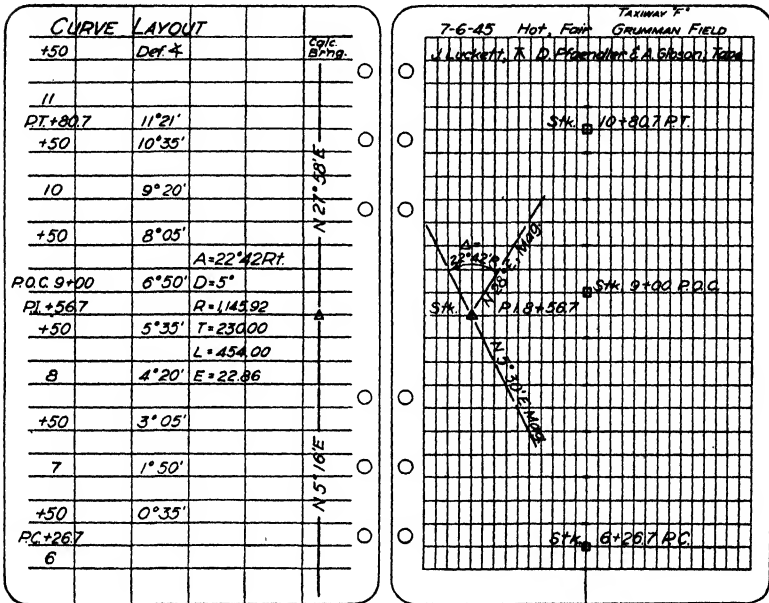 CURVE LAYOUT
+50 Def. ∡ Calc. Brng.
11
P.T. +80.7 11°21'
+50 10°35'
10 9°20'
+50 8°05'
Δ=22°42 Rt.
P.O.C. 9+00 6°50' D=5°
P.I. +56.7 R=1,145.92
+50 5°35' T=230.00
L=454.00
8 4°20' E=22.86
+50 3°05'
7 1°50'
+50 0°35'
P.C. +26.7
6
N 27°58'E
N 5°16'E
TAXIWAY "F"
7-6-45 Hot, Fair GRUMMAN FIELD
J. Luckett, ⊼ D. Pfaendler & A. Gibson, Tape
Stk. 10+80.7 P.T.
Δ=
22°42'Rt.
N 28° E. Mag.
Stk. 9+00 P.O.C.
Stk. P.I. 8+56.7
N 5°30'E. Mag.
Stk. 6+26.7 P.C.